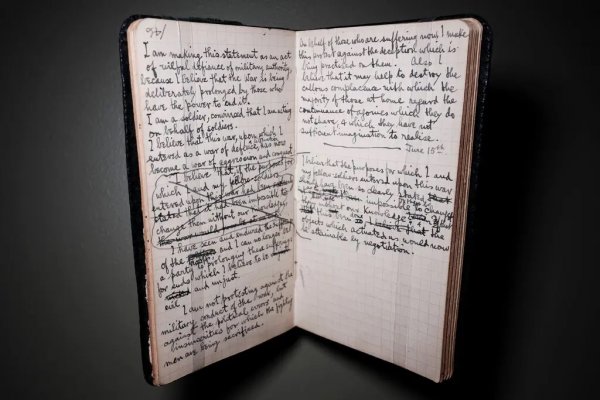 I am making this statement as an act
of wilful defiance of military authority,
because I believe that the war is being
deliberately prolonged by those who
have the power to end it.
I am a soldier, convinced that I am acting
on behalf of soldiers.
I believe that this war, upon which I
entered as a war of defence, has now
become a war of aggression and conquest.
I believe that if the purposes for
which I and my fellow soldiers
entered upon this war had been
stated then it would been impossible to
change them without our knowledge,
I have seen and endured the sufferings
of the and I can no longer be
a party to prolonging those sufferings
for ends which I believe to be
evil and unjust.
I am not protesting against the
military conduct of the war, but
against the political errors and
insincerities for which the fighting
men are being sacrificed.
On behalf of those who are suffering now, I make
this protest against the deception which is
being practised on them. Also I
believe that it may help to destroy the
callous complacence with which the
majority of those at home regard the
continuance of agonies which they do
not share, & which they have not
sufficient imagination to realise.
June 15th.
I believe that the purposes for which I and
my fellow soldiers entered upon this war
should have been so clearly stated
impossible to change
them without our knowledge
objects which actuated us would now
be attainable by negotiation.